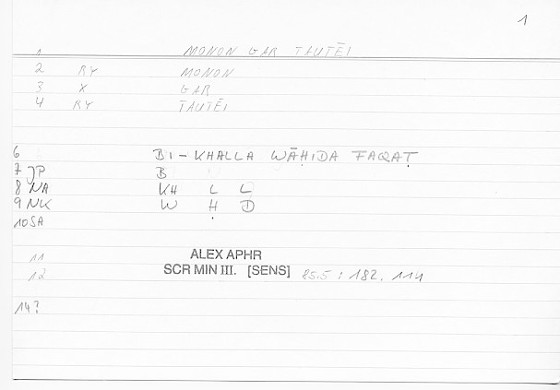 1
1 MONON GAR TAUTĒI
2 RY MONON
3 X GAR
4 RY TAUTĒI
6 BI-KHALLA WĀḤIDA FAQAṬ
7 JP B
8 NA KH L L
9 NK W Ḥ D
10 SA
11 ALEX APHR
12 SCR MIN III. [SENS] 85.5 : 182.114
14?